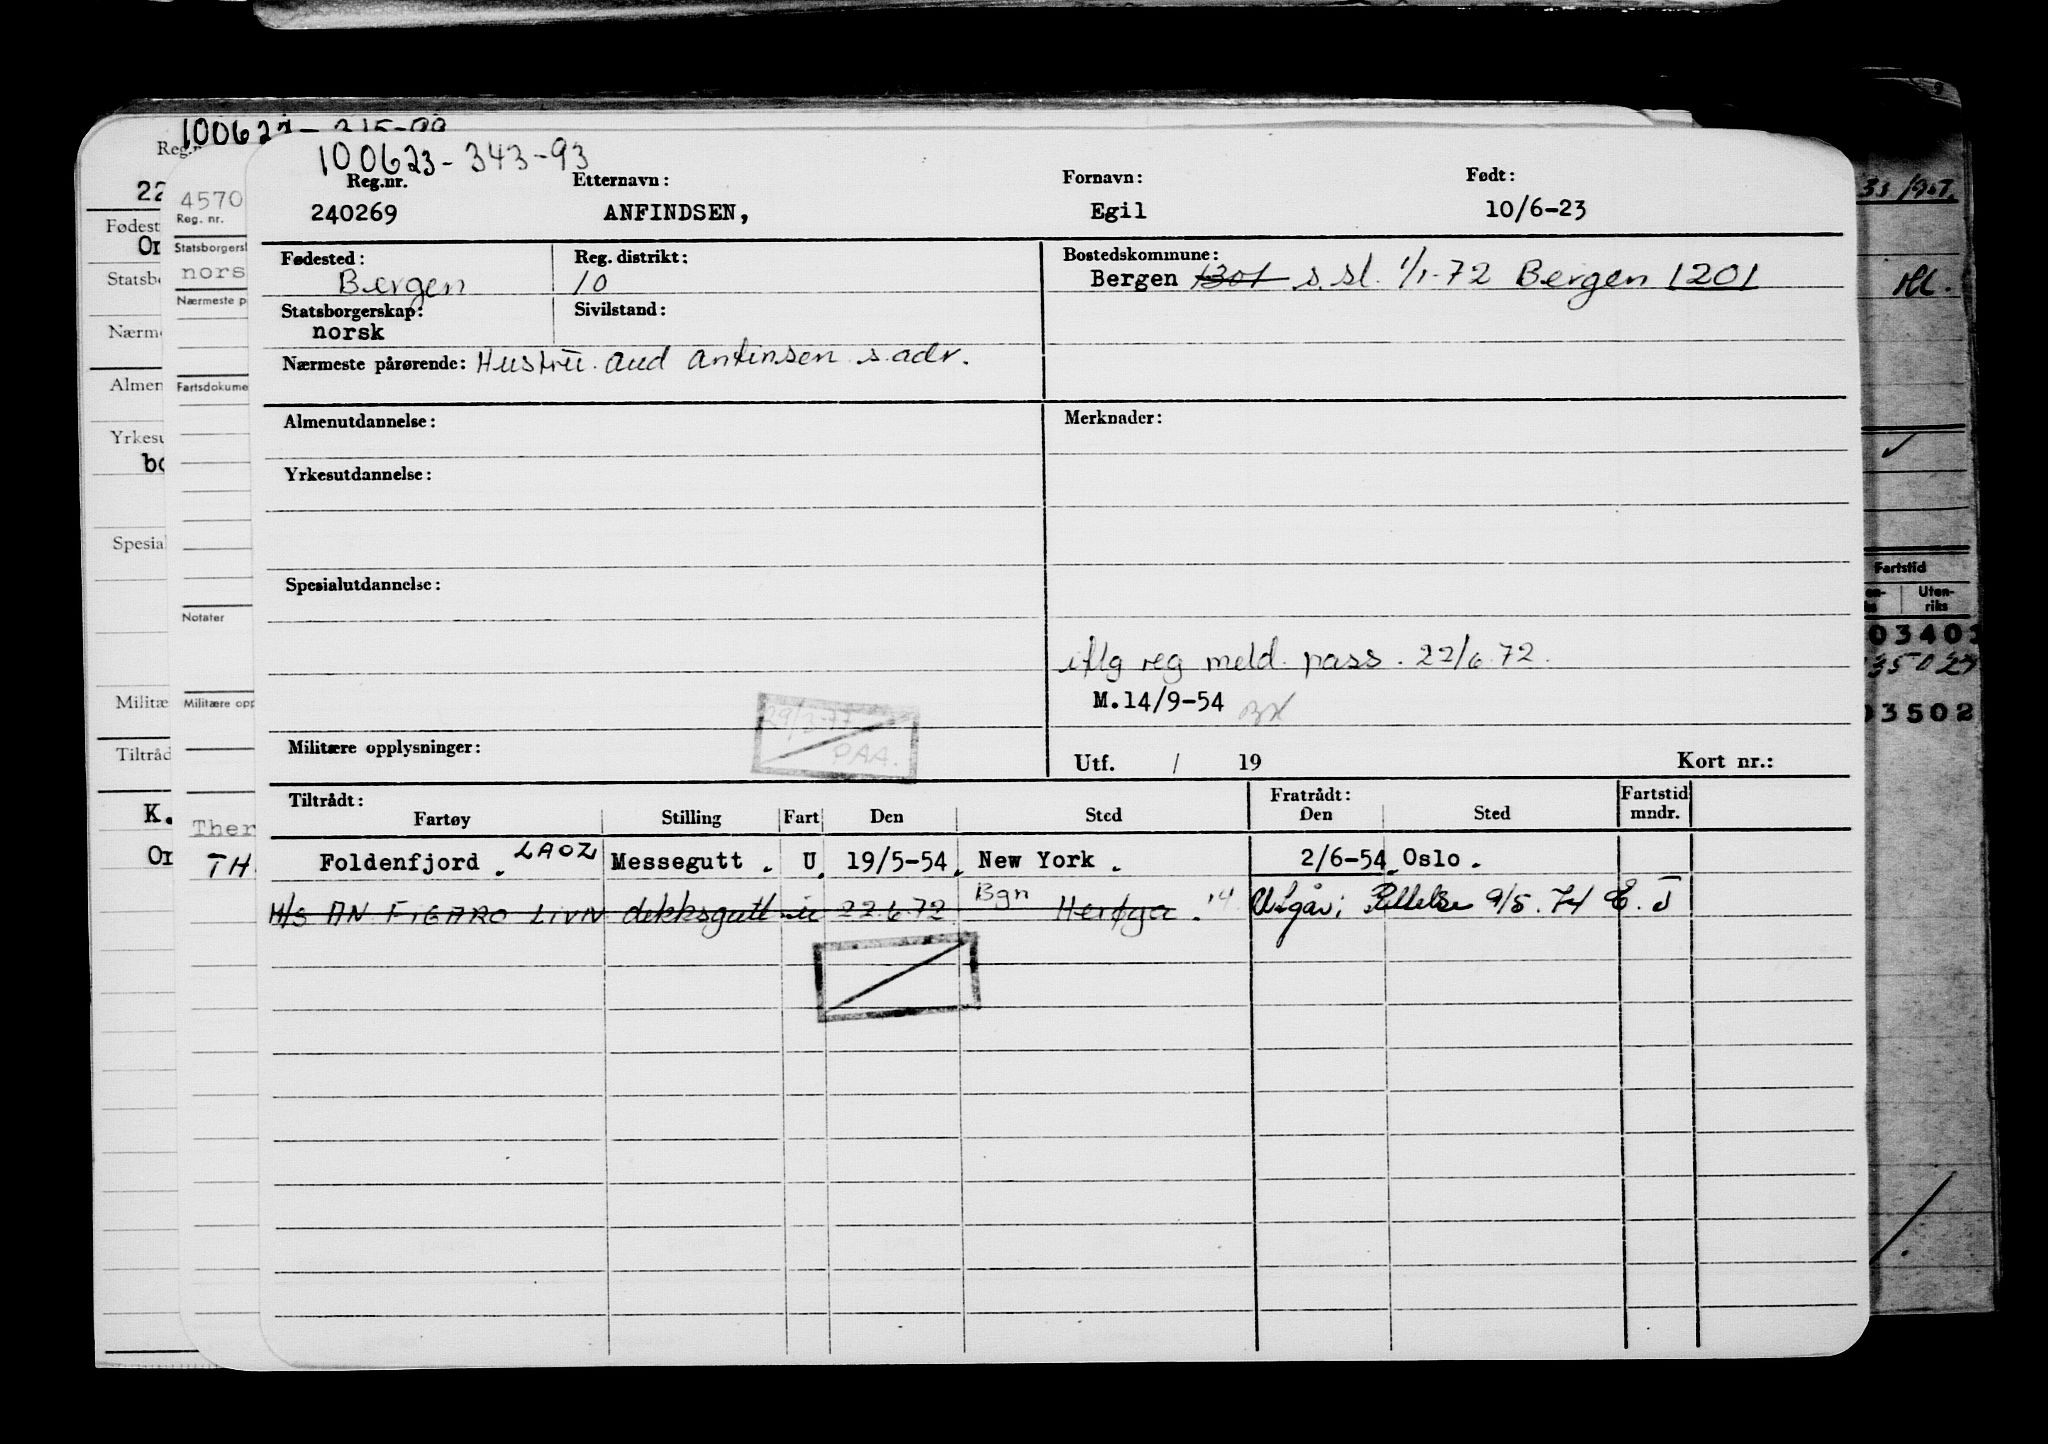 100623-343-93
Reg.nr. Etternavn: Fornavn: Født:
240269 ANFINDSEN, Egil 10/6-23
Fødested: Reg. distrikt: Bostedskommune:
Bergen 10 Bergen 1301 s.sl. 1/1-72 Bergen 1201
Statsborgerskap: Sivilstand:
norsk
Nærmeste pårørende: Hustru. Aud Anfinsen s.adr.
Almenutdannelse: Merknader:
Yrkesutdannelse:
Spesialutdannelse:
iflg reg meld. pass. 22/6.72.
M.14/9-54
PAA.
Militære opplysninger: Utf. / 19 Kort nr.:
Tiltrådt: Fratrådt: Fartstid
Fartøy Stilling Fart Den Sted Den Sted mndr.
Foldenfjord. LAOZ Messegutt. U. 19/5-54. New York. 2/6-54. Oslo.
M/S AN FIGARO LIVN dekksgutt u 22.6.72 Bgn Herøya. Utgår; 9/5.74 E.J
100623
Reg.nr
22
Fødest
Or
Statsbo
Nærme
Almen
Yrkesu
bo
Spesial
Militæ
Tiltråd
K.
Or
4570
Reg. nr.
Statsborgersk
nors
Nærmeste p
Fartsdokume
Notater
Militære opp
Ther
TH
Fartstid
Uten-
riks
03403
03502